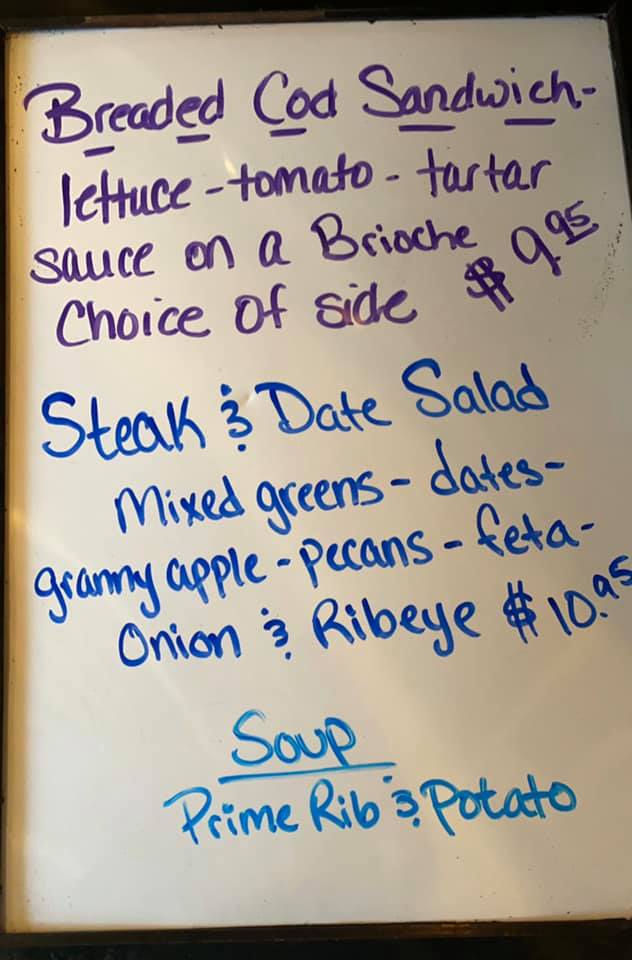 Breaded Cod Sandwich-
lettuce - tomato - tartar
sauce on a Brioche
Choice of side $9.95
Steak & Date Salad
Mixed greens - dates-
granny apple - pecans - feta-
Onion & Ribeye $10.95
Soup
Prime Rib & Potato